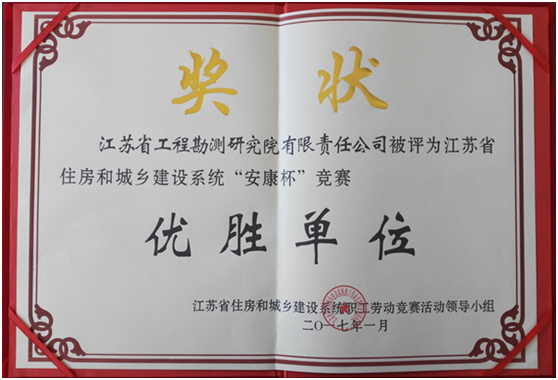 奖状
江苏省工程勘测研究院有限责任公司被评为江苏省
住房和城乡建设系统“安康杯”竞赛
优胜单位
江苏省住房和城乡建设系统职工劳动竞赛活动领导小组
二〇一七年一月